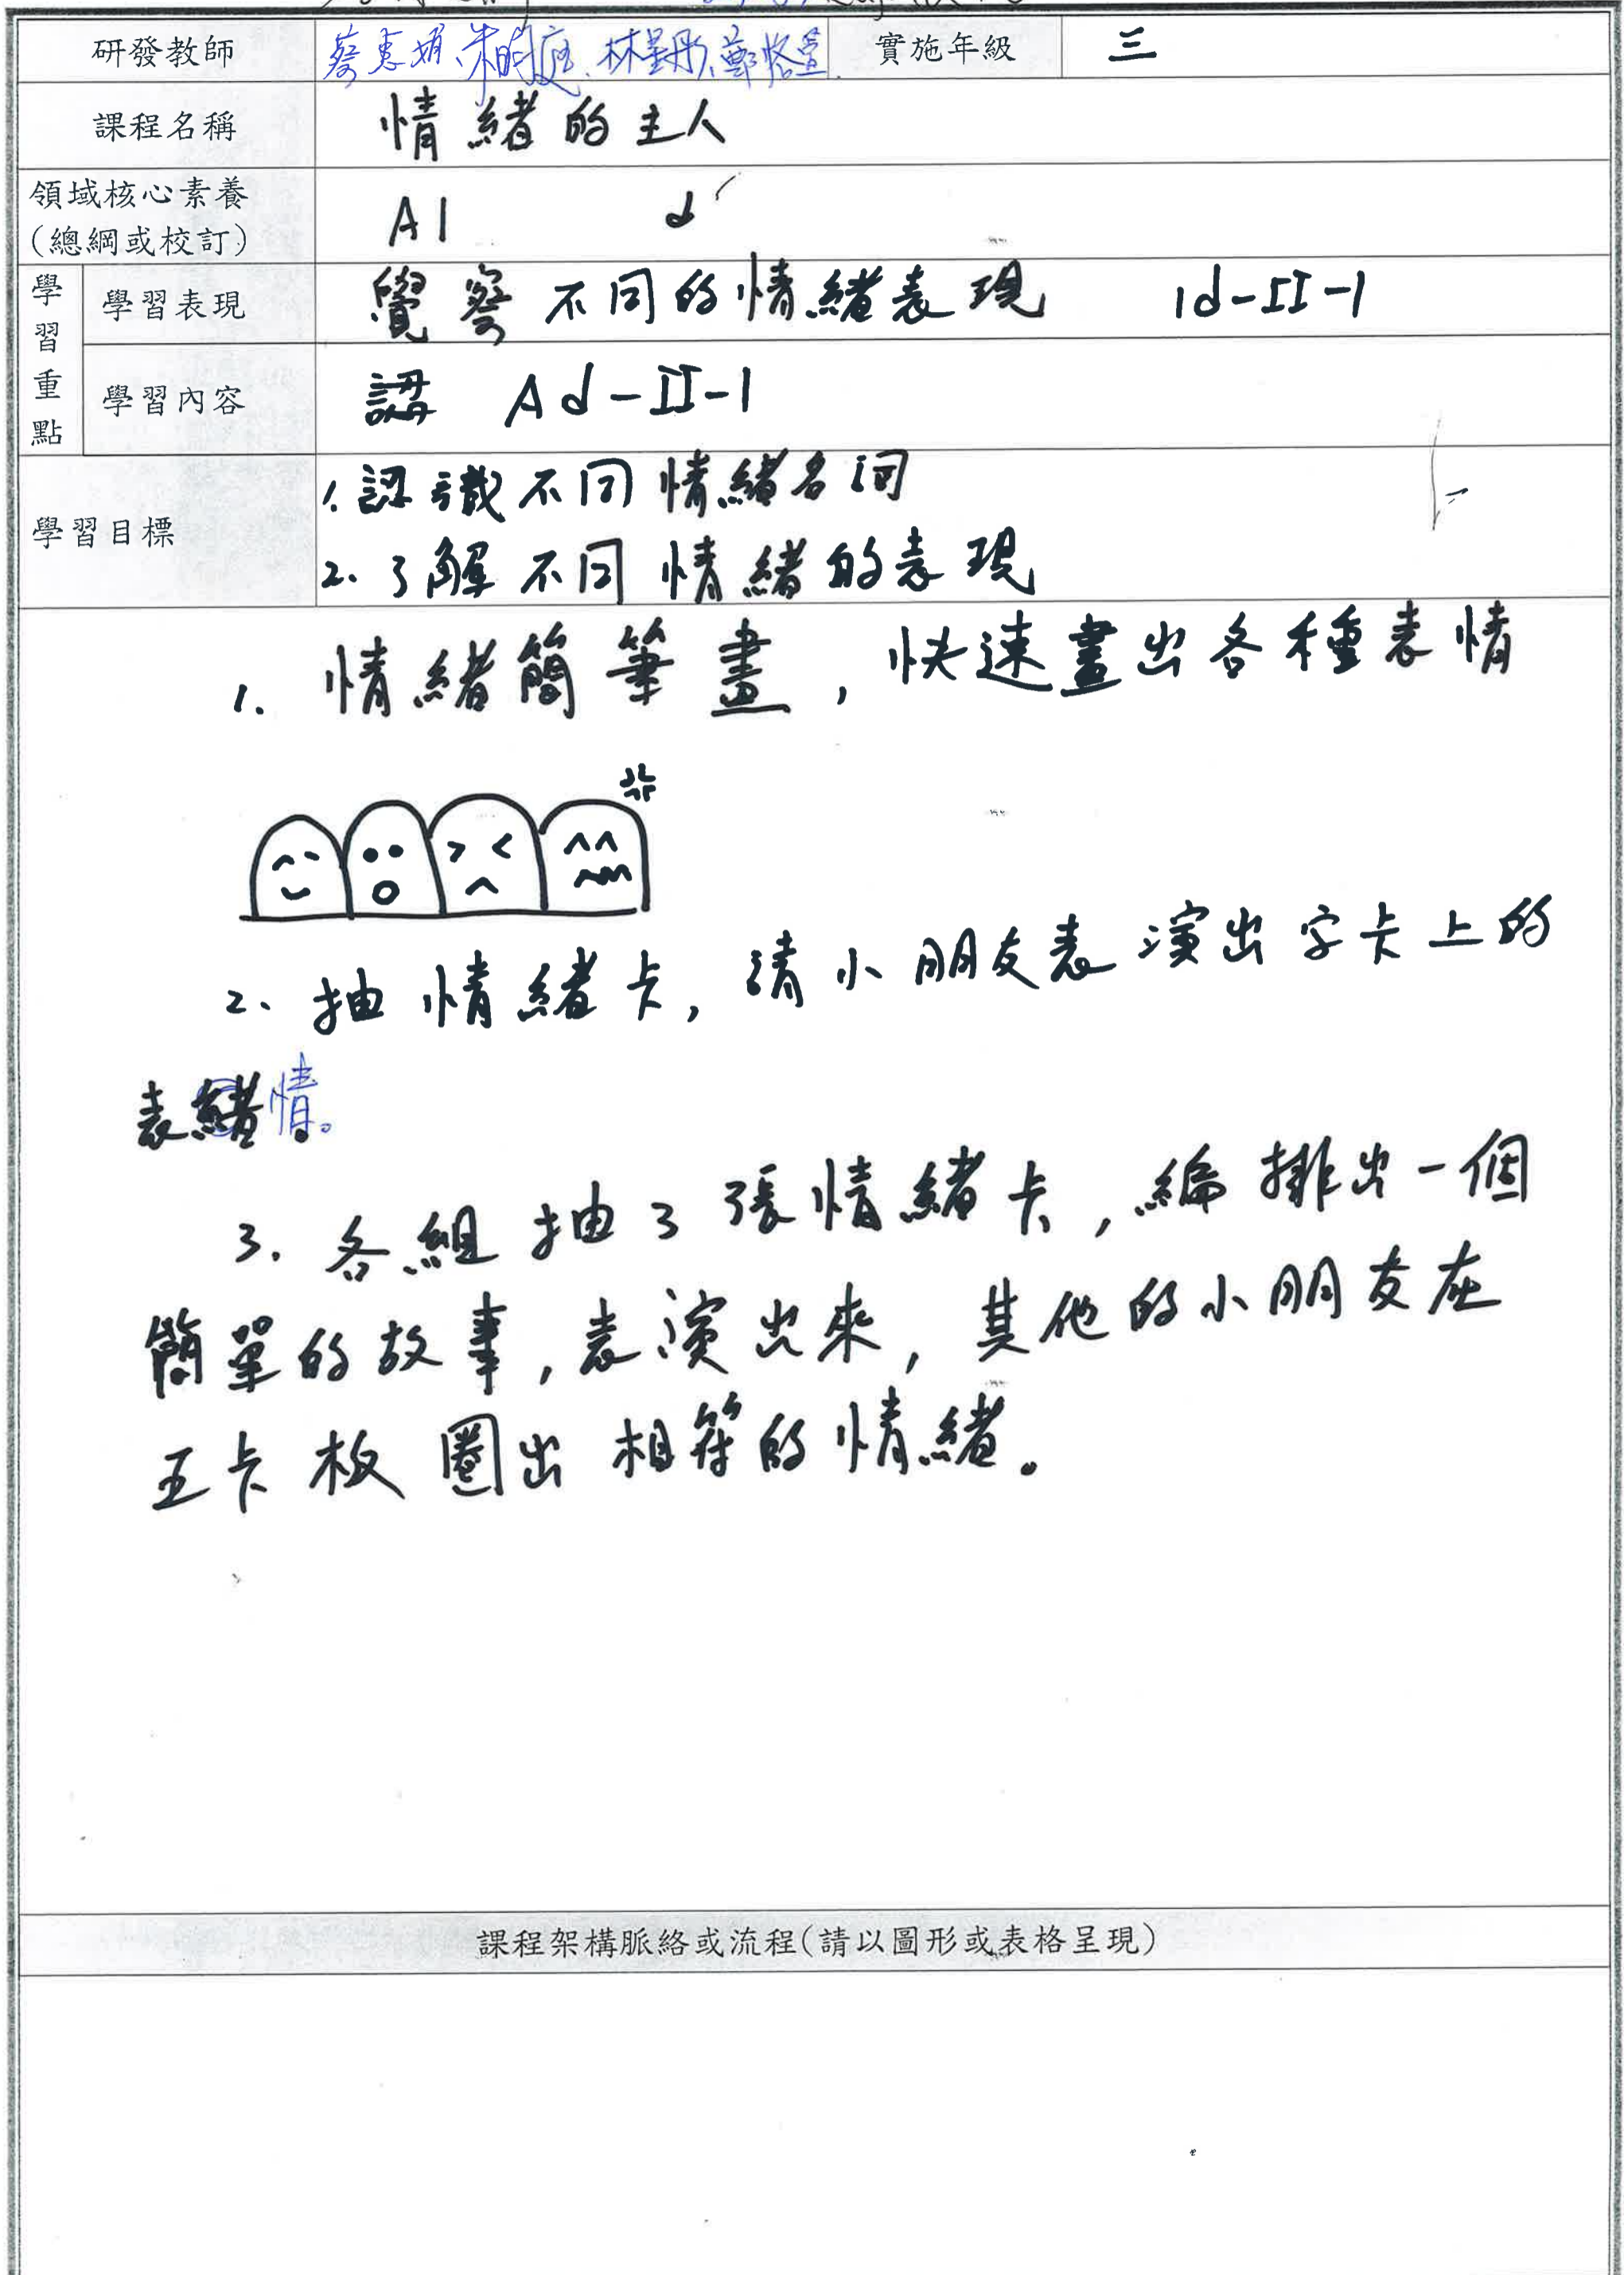 研發教師 蔡惠 林 鄭 實施年級 三
課程名稱 情緒的主人
領域核心素養 A1
(總綱或校訂)
學習重點
學習表現 覺察不同的情緒表現 1d-II-1
學習內容 Ad-II-1
學習目標
1.認識不同情緒名詞
2.了解不同情緒的表現
1. 情緒簡筆畫,快速畫出各種表情
2、抽情緒卡,請小朋友表演出字卡上的
表情。
3. 各組抽3張情緒卡,編排出一個
簡單的故事,表演出來,其他的小朋友在
五卡板圈出相符的情緒。
課程架構脈絡或流程(請以圖形或表格呈現)